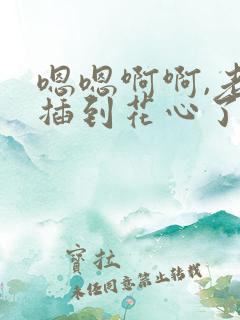 嗯嗯啊啊,老
插到花心了
寳拉
未任同意禁止转载